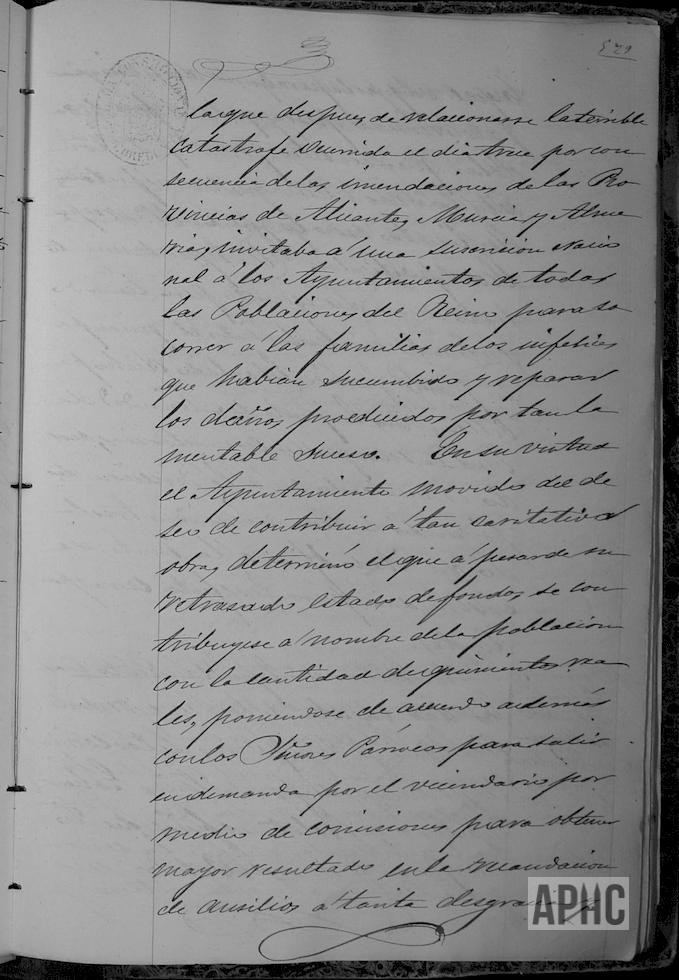 529
la que despues de relacionarse la terrible
catastrofe ocurrida el dia trece por con
secuencia de las inundaciones de las Pro
vincias de Alicante, Murcia y Alme
ria, invitaba á una suscricion Nacio
nal á los Ayuntamientos de todas
las Poblaciones del Reino para so
correr á las familias de los infelices
que habian sucumbido y reparar
los daños producidos por tan la
mentable suceso. En su virtud
el Ayuntamiento movido del de
seo de contribuir á tan caritativa
obra, determinó el que á pesar de su
retrasado estado de fondos, se con
tribuyese á nombre de la poblacion
con la cantidad de quinientos rea
les, poniendose de acuerdo además
con los Señores Párrocos para salir
en demanda por el vecindario por
medio de comisiones para obtener
mayor resultado en la recaudacion
de ausilios á tanta desgracia
APHC